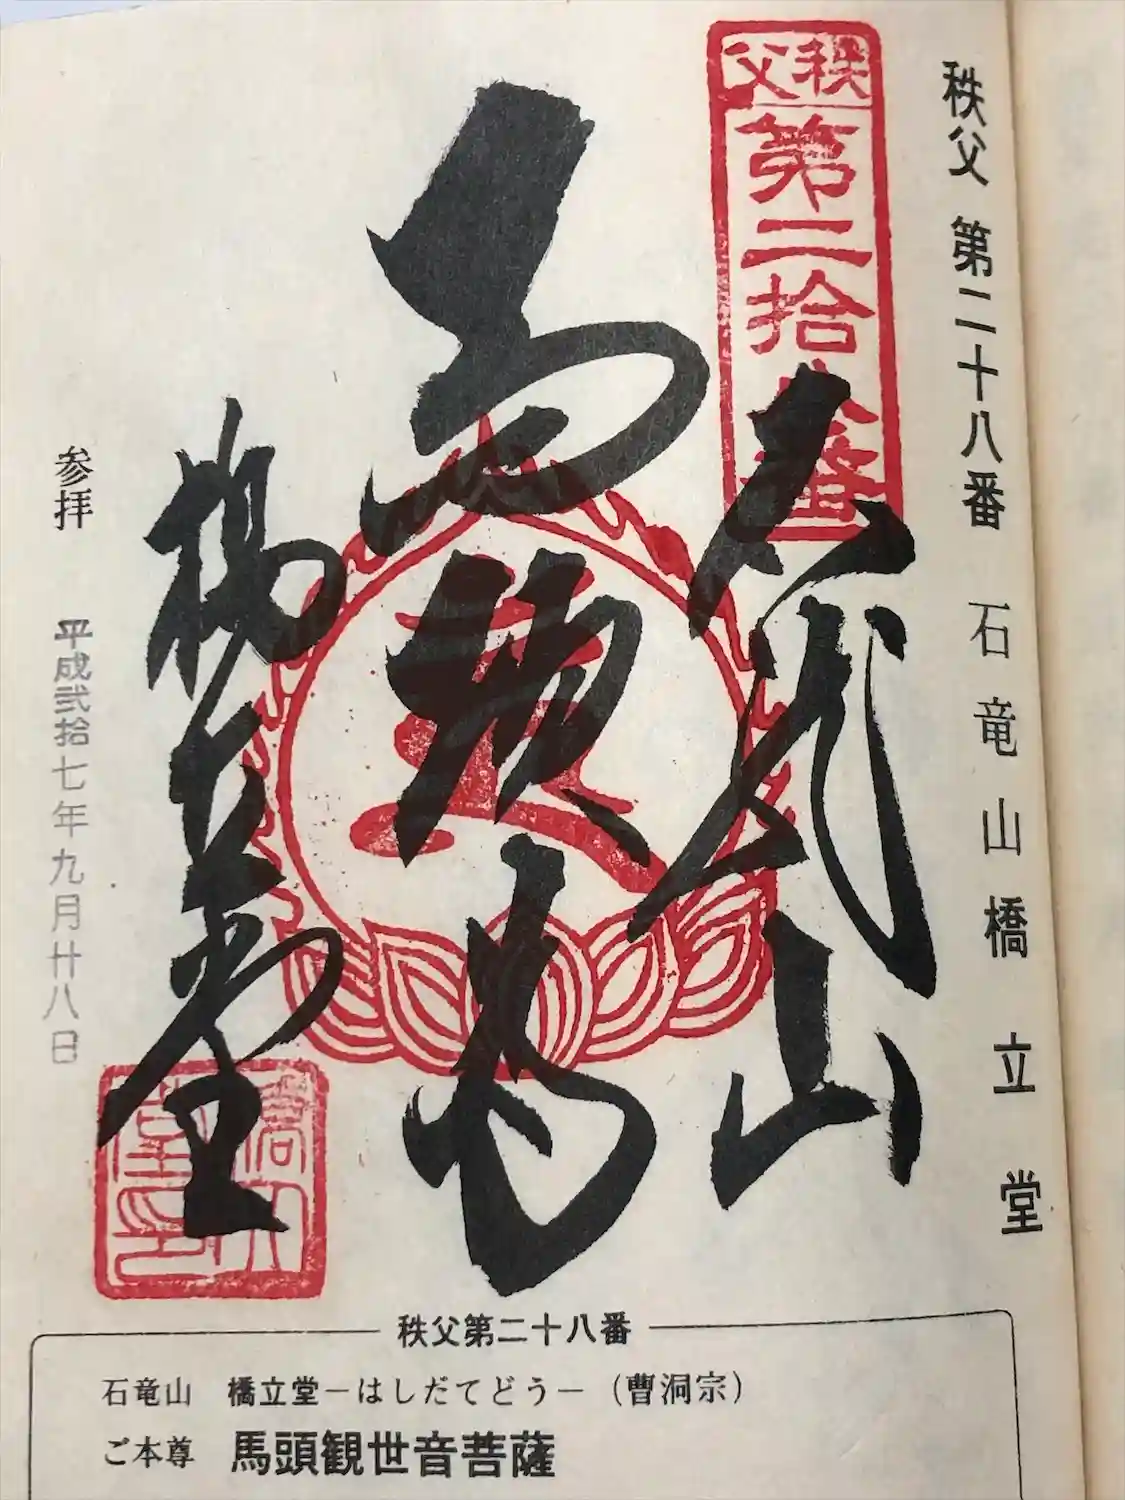 秩父 第二十八番 石竜山橋立堂
秩父
第二拾八番
石竜山
馬頭尊
橋立堂
参拝 平成弐拾七年九月廿八日
秩父第二十八番
石竜山 橋立堂－はしだてどう－（曹洞宗）
ご本尊 馬頭観世音菩薩